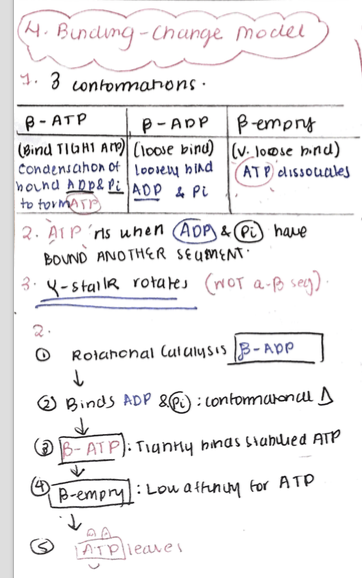 4. Binding-Change Model
1. 3 conformations.
β-ATP β-ADP β-empty
(Bind TIGHT ATP) (loose bind) (v. loose bind)
Condensation of loosely bind ATP dissociates
bound ADP & Pi ADP & Pi
to form ATP
2. ATP rls when ADP & Pi have
BOUND ANOTHER SEGMENT.
3. γ-stalk rotates (NOT α-β seg)
2.
① Rotational Catalysis β-ADP
↓
② Binds ADP & Pi : conformational Δ
↓
③ β-ATP : Tightly binds stablied ATP
↓
④ β-empty : Low affinity for ATP
↓
⑤ ATP leaves